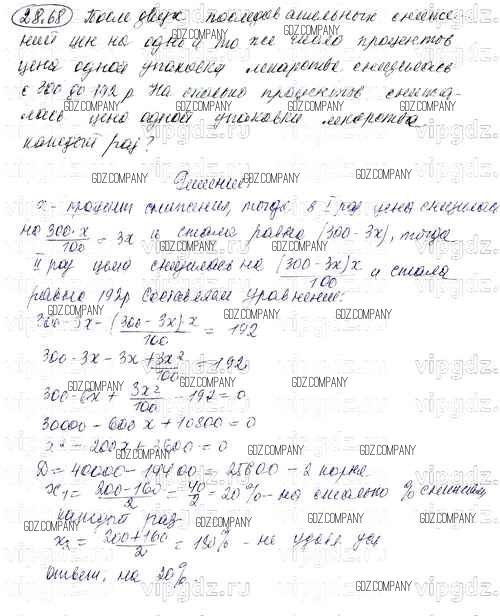 28.68 После двух последовательных сниже-
ний цен на одно и то же число процентов
цена одной упаковки лекарства снизилась
с 300 до 192 р. На сколько процентов снижа-
лась цена одной упаковки лекарства
каждый раз?
Решение:
x - процент снижения, тогда в I раз цена снизилась
на 300·x/100 = 3x и стала равна (300-3x), тогда
II раз цена снизилась на (300-3x)x/100 и стала
равна 192р Составляем уравнение:
300-3x-(300-3x)x/100 = 192
300-3x-3x+3x²/100 = 192
300-6x+3x²/100-192=0
30000-600x+10800=0
x²-200x+3600=0
D=40000-14400=25600 - 2 корня
x₁=200-160/2=40/2=20% - на столько % снижали
каждый раз
x₂=200+160/2=180% - не удовл усл
ответ, на 20%.